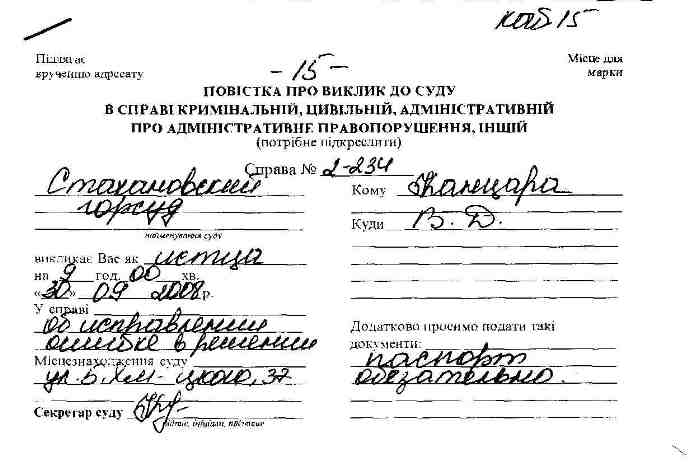 каб 15
Підлягає
врученню адресату
Місце для
марки
- 15 -
ПОВІСТКА ПРО ВИКЛИК ДО СУДУ
В СПРАВІ КРИМІНАЛЬНІЙ, ЦИВІЛЬНІЙ, АДМІНІСТРАТИВНІЙ
ПРО АДМІНІСТРАТИВНЕ ПРАВОПОРУШЕННЯ, ІНШІЙ
(потрібне підкреслити)
Справа № 2-234
Стахановский
горсуд
найменування суду
викликає Вас як истца
на 9 год. 00 хв.
«30» 09 2008 р.
У справі
об исправлении
ошибке в решении
Місцезнаходження суду
ул. Б. Хм-цкого, 37
Секретар суду
підпис, ініціали, прізвище
Кому
Куди В. Д.
Додатково просимо подати такі
документи:
паспорт
обезательно.